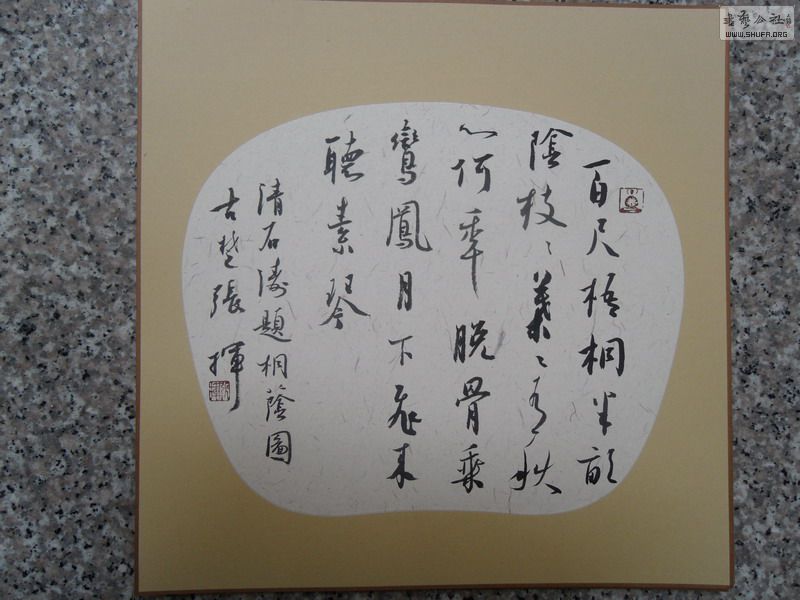 百尺梧桐半畝
陰枝〻葉〻有秋
心何年脫骨乘
鸞鳳月下飛来
聽素琴
清石濤題桐蔭圖
古楚張揮
書藝公社
WWW.SHUFA.ORG